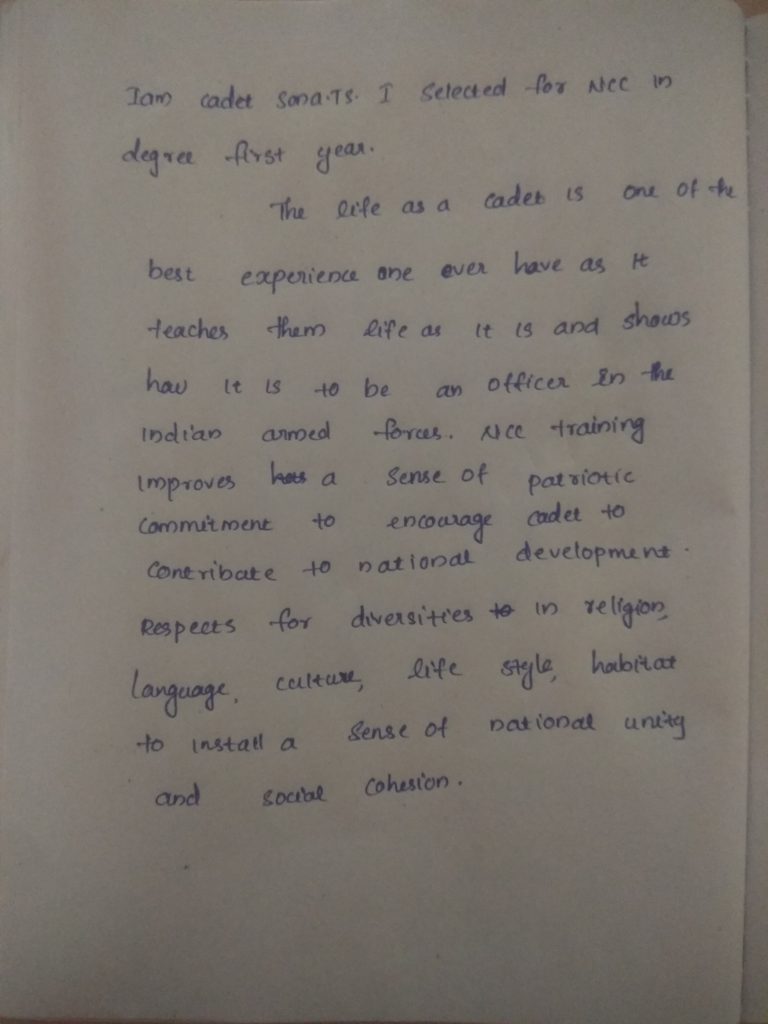 Iam cadet Sona.TS. I Selected for NCC in
degree first year.
The life as a cadet is one of the
best experience one ever have as it
teaches them life as it is and shows
how it is to be an officer in the
indian armed forces. NCC training
improves a sense of patriotic
commitment to encourage cadet to
contribute to national development.
Respects for diversities in religion,
language, culture, life style, habitat
to install a sense of national unity
and social cohesion.